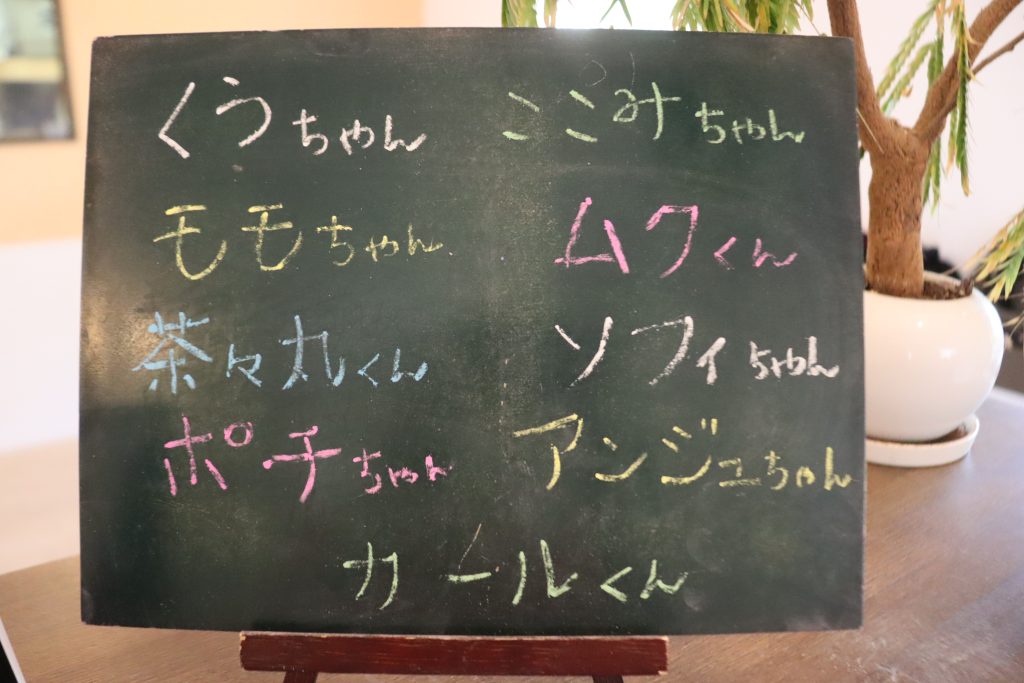 くうちゃん ここみちゃん
モモちゃん ムクくん
茶々丸くん ソフィちゃん
ポチちゃん アンジュちゃん
カールくん